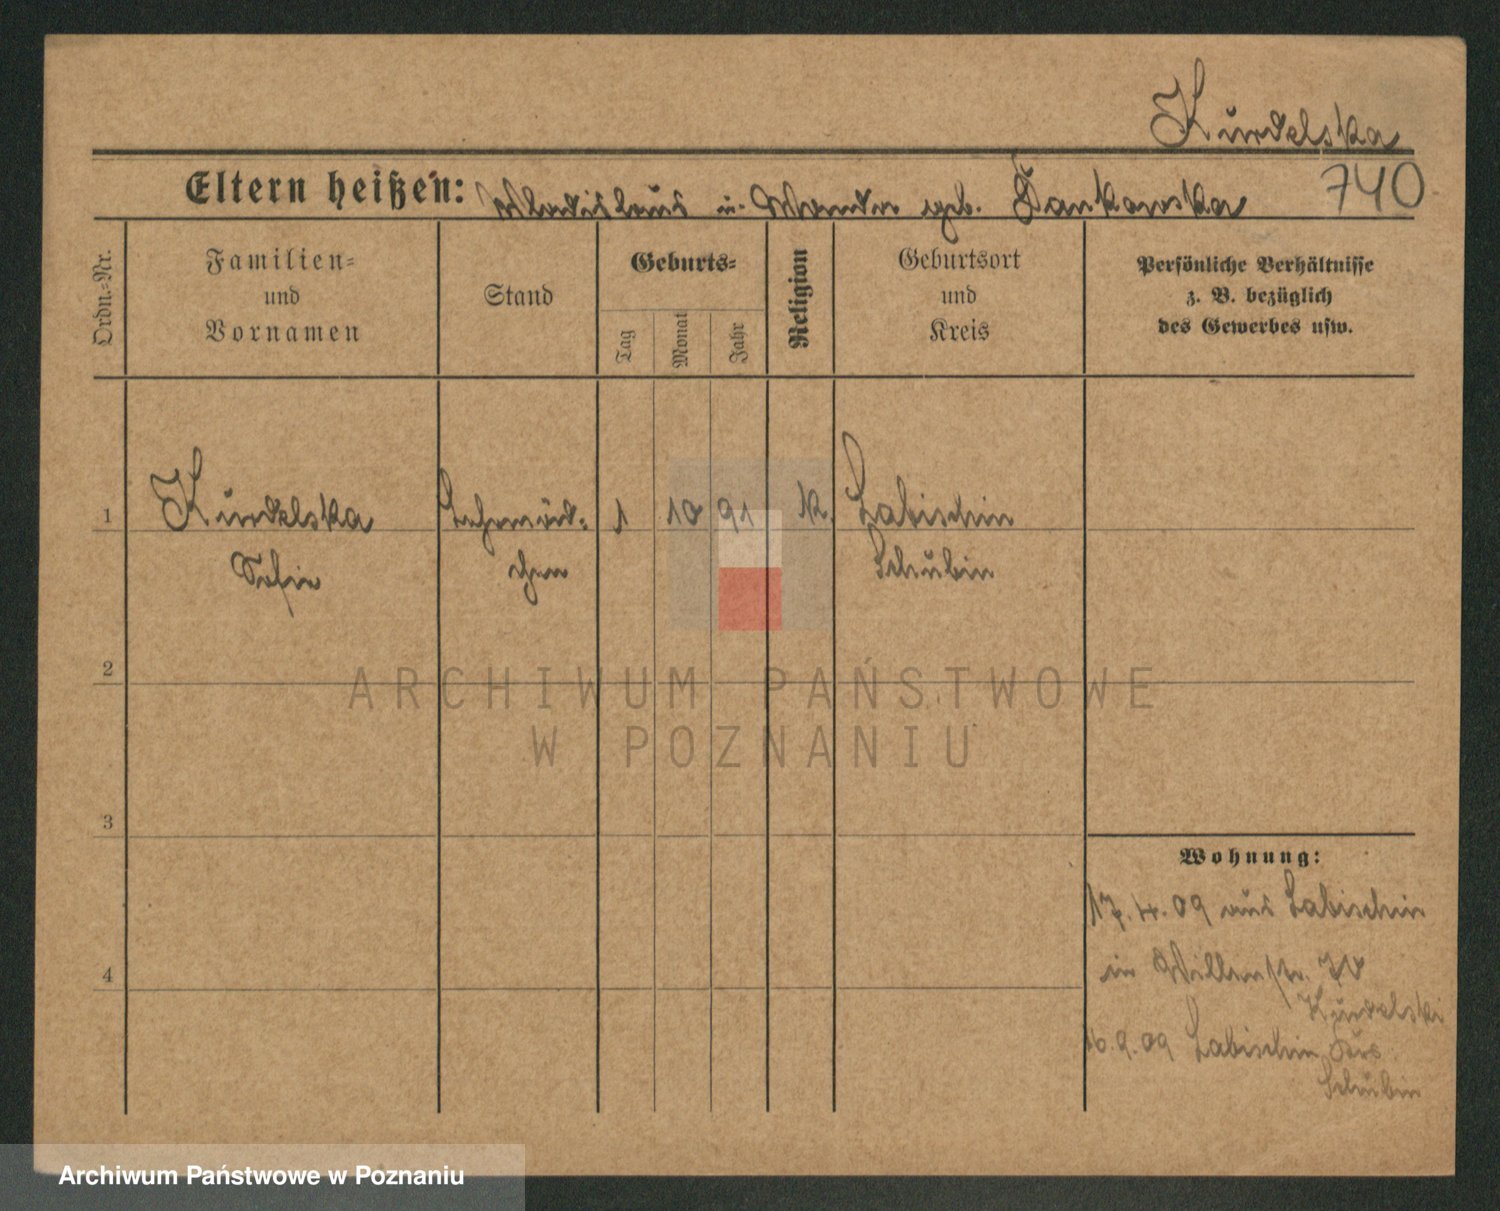 Kurdelska
740
Eltern heißen: Wladislaus u. Wanda geb. Jankowska
Ordn.=Nr.
Familien=
und
Vornamen
Stand
Geburts=
Tag
Monat
Jahr
Religion
Geburtsort
und
Kreis
Persönliche Verhältnisse
z. B. bezüglich
des Gewerbes usw.
1 Kurdelska Lehrmäd= 1 10 91 k. Labischin
Sofie chen Schubin
2
3
4
Wohnung:
17.4.09 aus Labischin
in
Kurdelski
16.9.09 Labischin Krs.
Schubin
ARCHIWUM PAŃSTWOWE
W POZNANIU
Archiwum Państwowe w Poznaniu